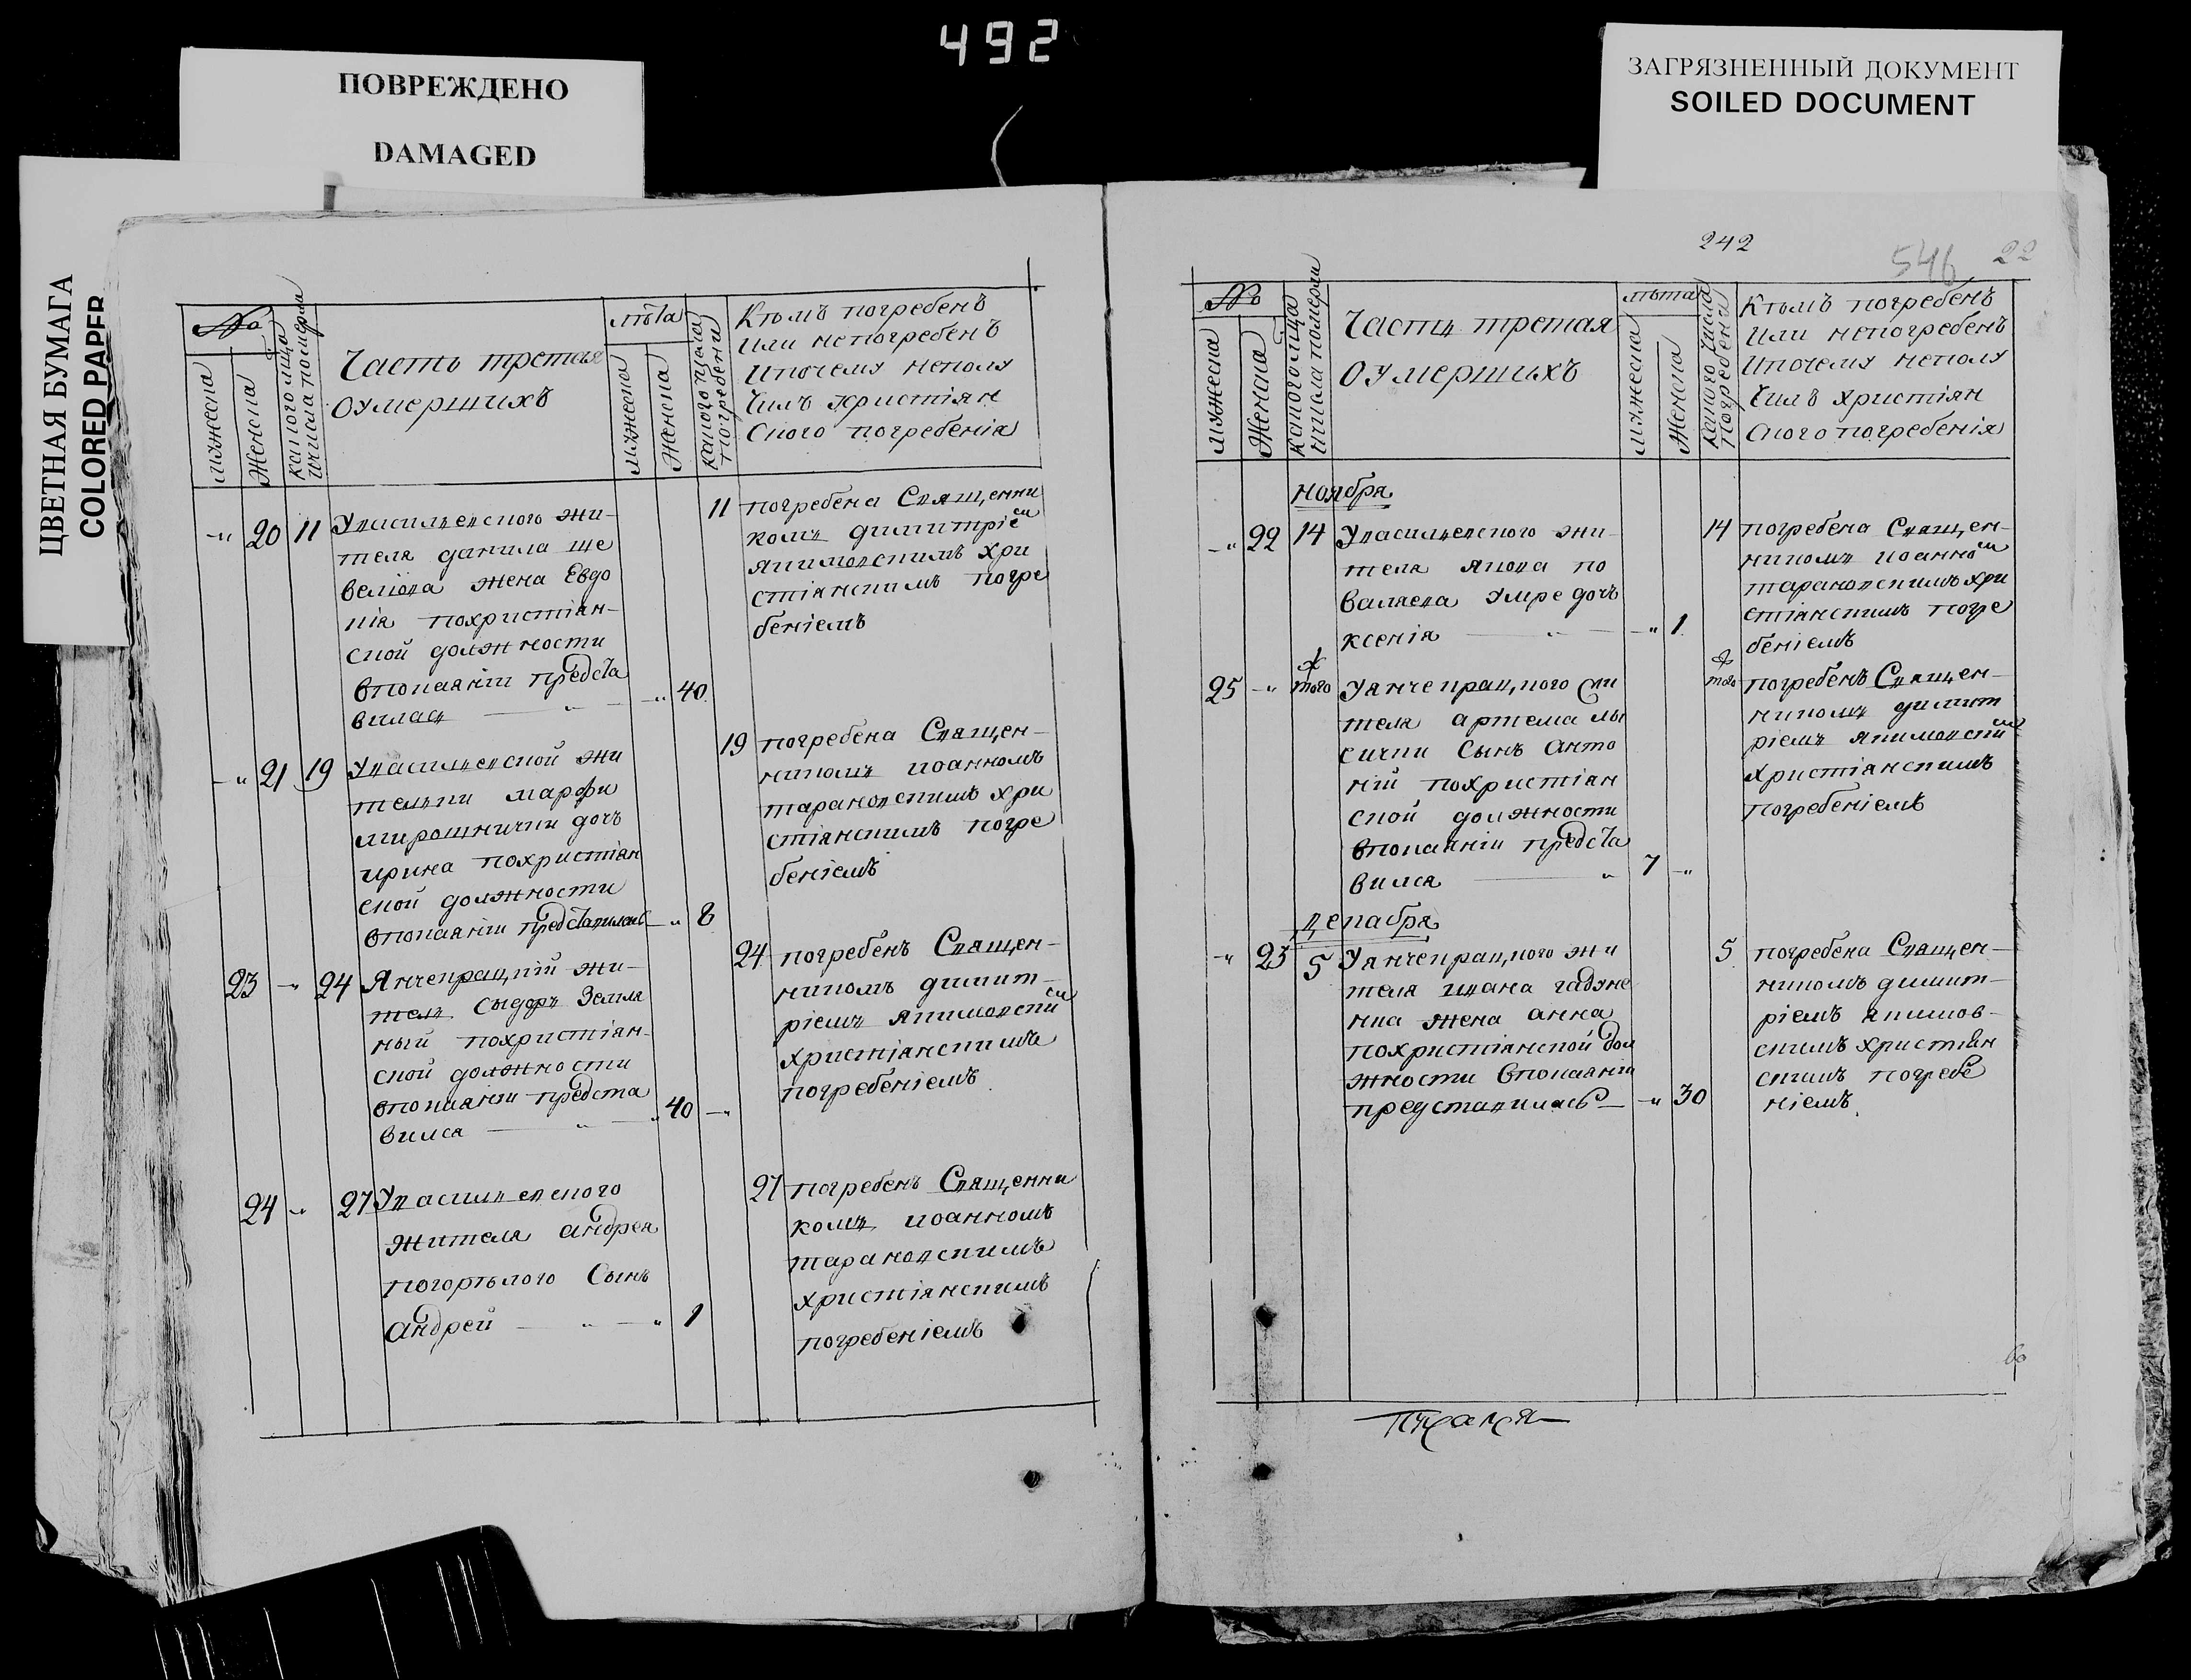 492
ПОВРЕЖДЕНО
DAMAGED
ЗАГРЯЗНЕННЫЙ ДОКУМЕНТ
SOILED DOCUMENT
ЦВЕТНАЯ БУМАГА
COLORED PAPER
№
мужеска
Женска
Которого мца
ичисла померли
Часть третая
оумершихъ
лѣта
мужеска
Женска
Которого числа
погребены
Кѣмъ погребенъ
или непогребенъ
ипочему неполу
чилъ христіан
ского погребенія
-" 20 11
Увасилевского жи-
теля данила ще
веліова жена Евдо
кія похристіан-
ской должности
впокаяніи предста
вилас — " — " 40
11 погребена Священни
комъ димитріем
якимовскимъ хри
стіанскимъ погре
беніемъ
-" 21 19
Увасилевской жи
телки марфи
мирошнички дочь
ирина похристіан
ской должности
впокаяніи представилась — " 8
19 погребена Священ-
никомъ иоанномъ
тарановскимъ хри
стіанскимъ погре
беніемъ
23 -" 24
Янчекрацкій жи-
тель сыдоръ Земля
ный похристіан-
ской должности
впокаяніи предста
вился — " — " 40 -"
24 погребенъ Священ-
никомъ димит-
ріемъ якимовским
христіанскимъ
погребеніемъ
24 -" 27
Увасилевского
жителя андрея
погорѣлого Сынъ
андрей — " — " 1
27 погребенъ Священни
комъ иоанномъ
тарановскимъ
христіанскимъ
погребеніемъ
242
546 22
№
мужеска
Женска
Которого мца
ичисла померли
Часть третая
оумершихъ
лѣта
мужеска
Женска
Которого числа
погребены
Кѣмъ погребенъ
или непогребенъ
ипочему неполу
чилъ христіан
ского погребенія
ноября
-" 22 14
Увасилевского жи-
теля якова ко
валяева умре дочь
ксенія — " — " 1
14 погребена Священ-
никомъ иоанном
тарановскимъ хри
стіанскимъ погре
беніемъ
25 -" того
Уянчекрацкого жи
теля артема лы
сички сынъ анто
ній похристіан
ской должности
впокаяніи предста
вился — " 7 -"
того погребенъ Священ-
никомъ димит
ріемъ якимовским
христіанскимъ
погребеніемъ
декабря
-" 23 5
Уянчекрацкого жи
теля ивана гадюче
нка жена анна
похристіанской дол
жности впокаяніи
представилась — " 30
5 погребена Священ-
никомъ димит-
ріемъ якимов-
скимъ христіан
скимъ погребе
ніемъ